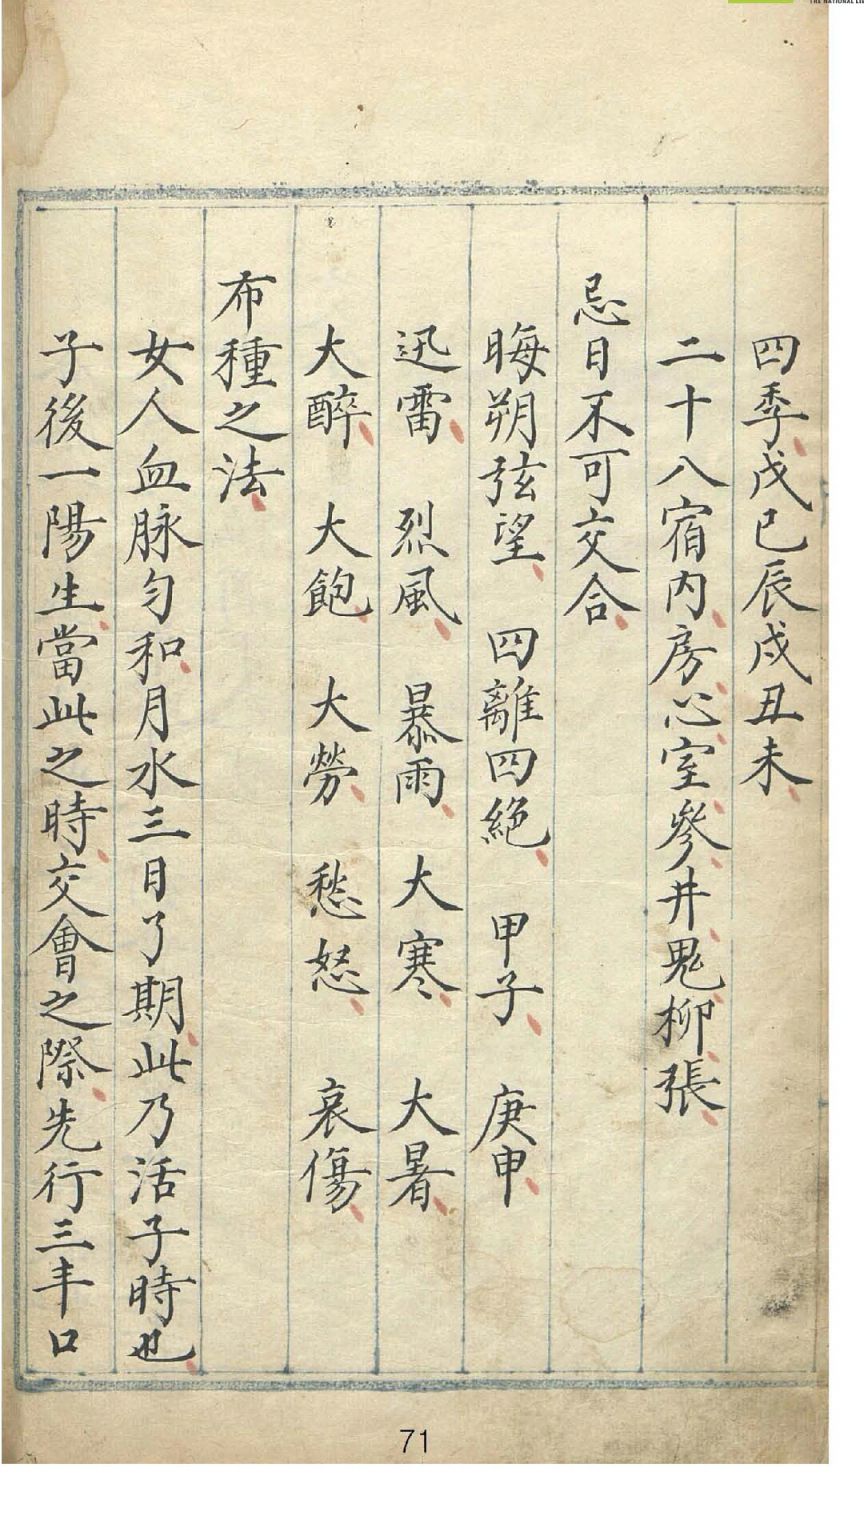 四季戊己辰戌丑未
二十八宿内房心室參井鬼柳張
忌日不可交合
晦朔弦望 四離四絶 甲子 庚申
迅雷 烈風 暴雨 大寒 大暑
大醉 大飽 大勞 愁怒 哀傷
布種之法
女人血脉勻和月水三日了期此乃活子時也
子後一陽生當此之時交會之際先行三丰口
71